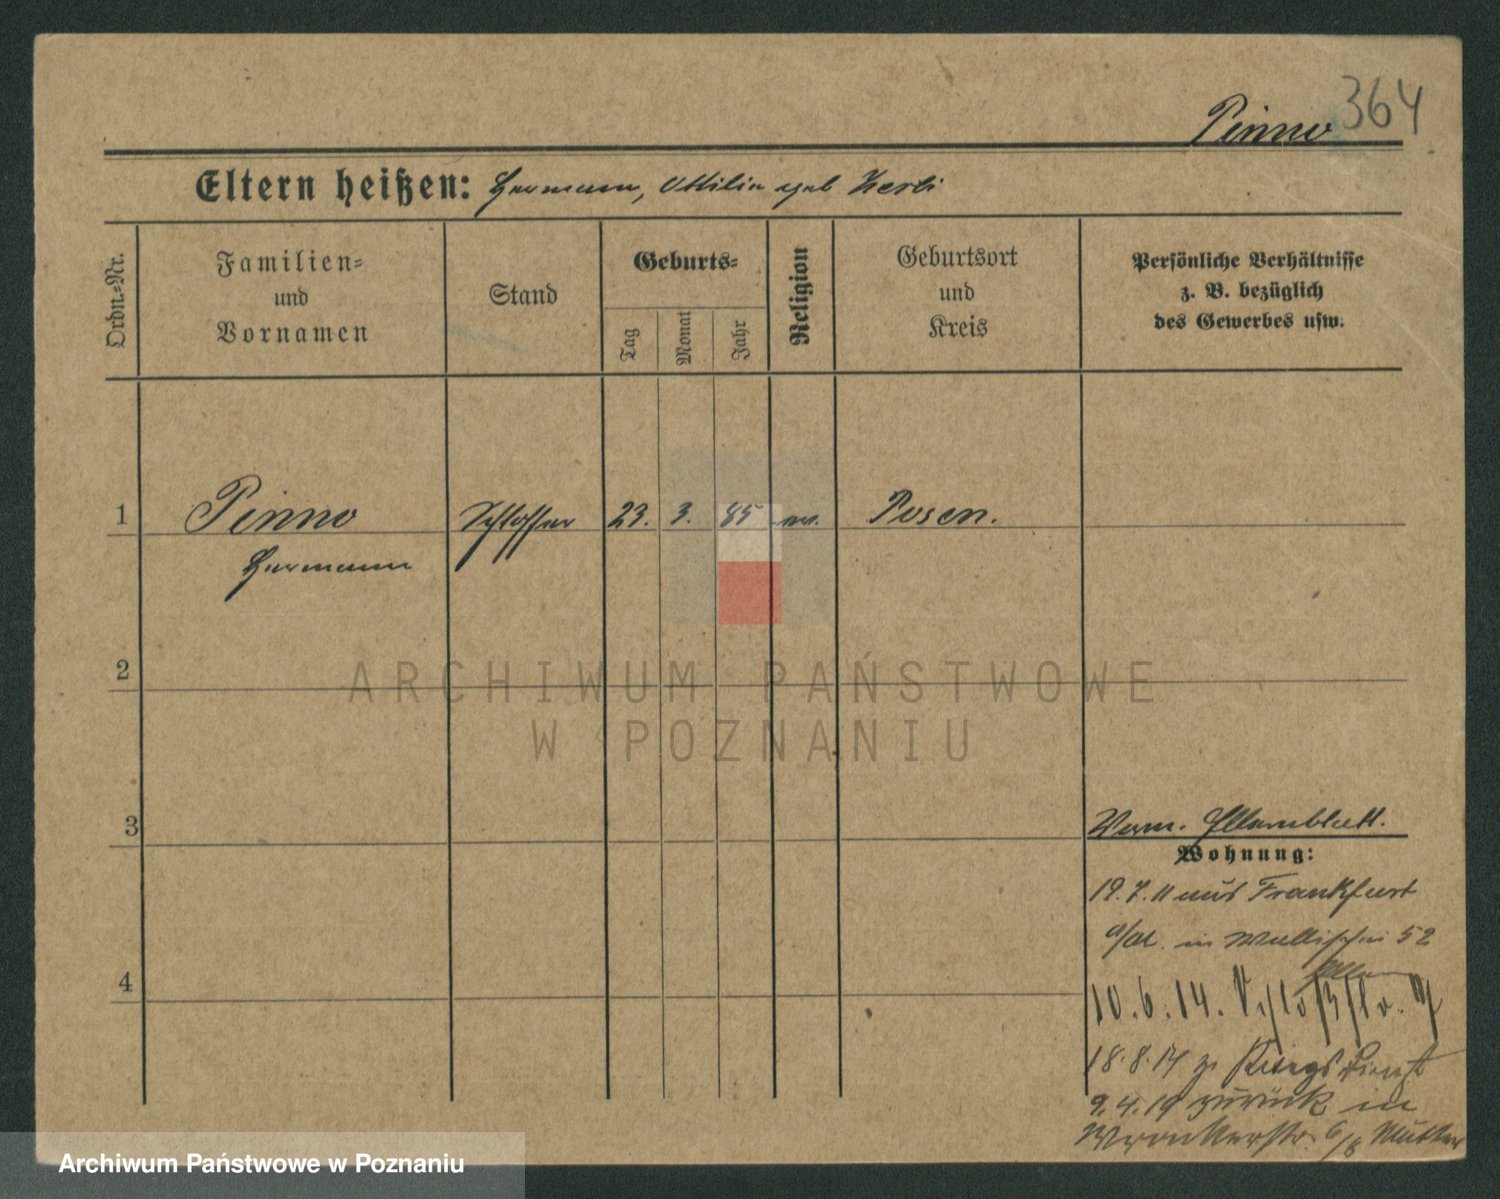 Pinno 364
Eltern heißen: Hermann, Ottilie geb
Ordn.-Nr.
Familien-
und
Vornamen
Stand
Geburts-
Tag
Monat
Jahr
Religion
Geburtsort
und
Kreis
Persönliche Verhältnisse
z. B. bezüglich
des Gewerbes usw.
1 Pinno Schlosser 23. 3. 85 ev. Posen.
Hermann
2
ARCHIWUM PAŃSTWOWE
W POZNANIU
3
Verm. Elternblatt.
Wohnung:
19.7.11 aus Frankfurt
a/M. in Wallischei 52
Eltern
4
10.6.14. Schloßstr.
18.8.14 z. Kriegsdienst
9.4.19 zurück in
Wronkerstr. 6/8 Mutter
Archiwum Państwowe w Poznaniu